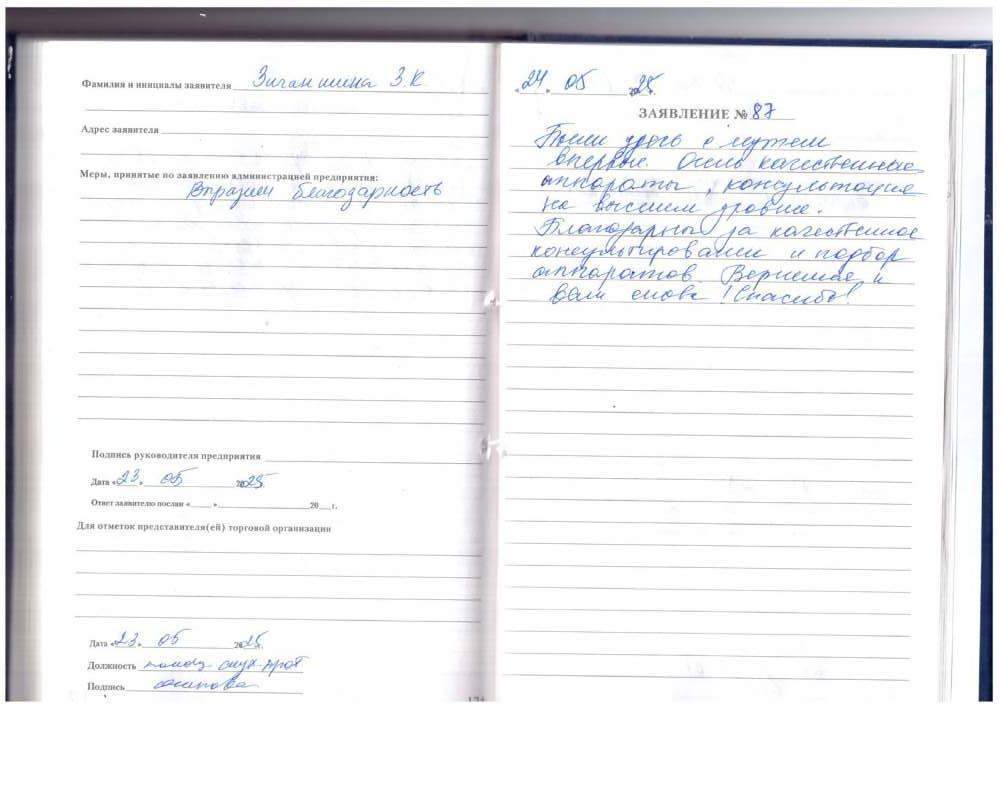 Фамилия и инициалы заявителя Зиганшина З.К
Адрес заявителя
Меры, принятые по заявлению администрацией предприятия:
благодарность
Подпись руководителя предприятия
Дата «23» 05 2025г.
Ответ заявителю послан «___» 20__г.
Для отметок представителя(ей) торговой организации
Дата «23» 05 2025г.
Должность
Подпись
«24» 05 2025г.
ЗАЯВЛЕНИЕ № 87
Были здесь с мужем
впервые. Очень качественные
аппараты, консультация
на высшем уровне.
Благодарны за качественное
консультировании и подбор
аппаратов. Вернемся к
вам снова! Спасибо!